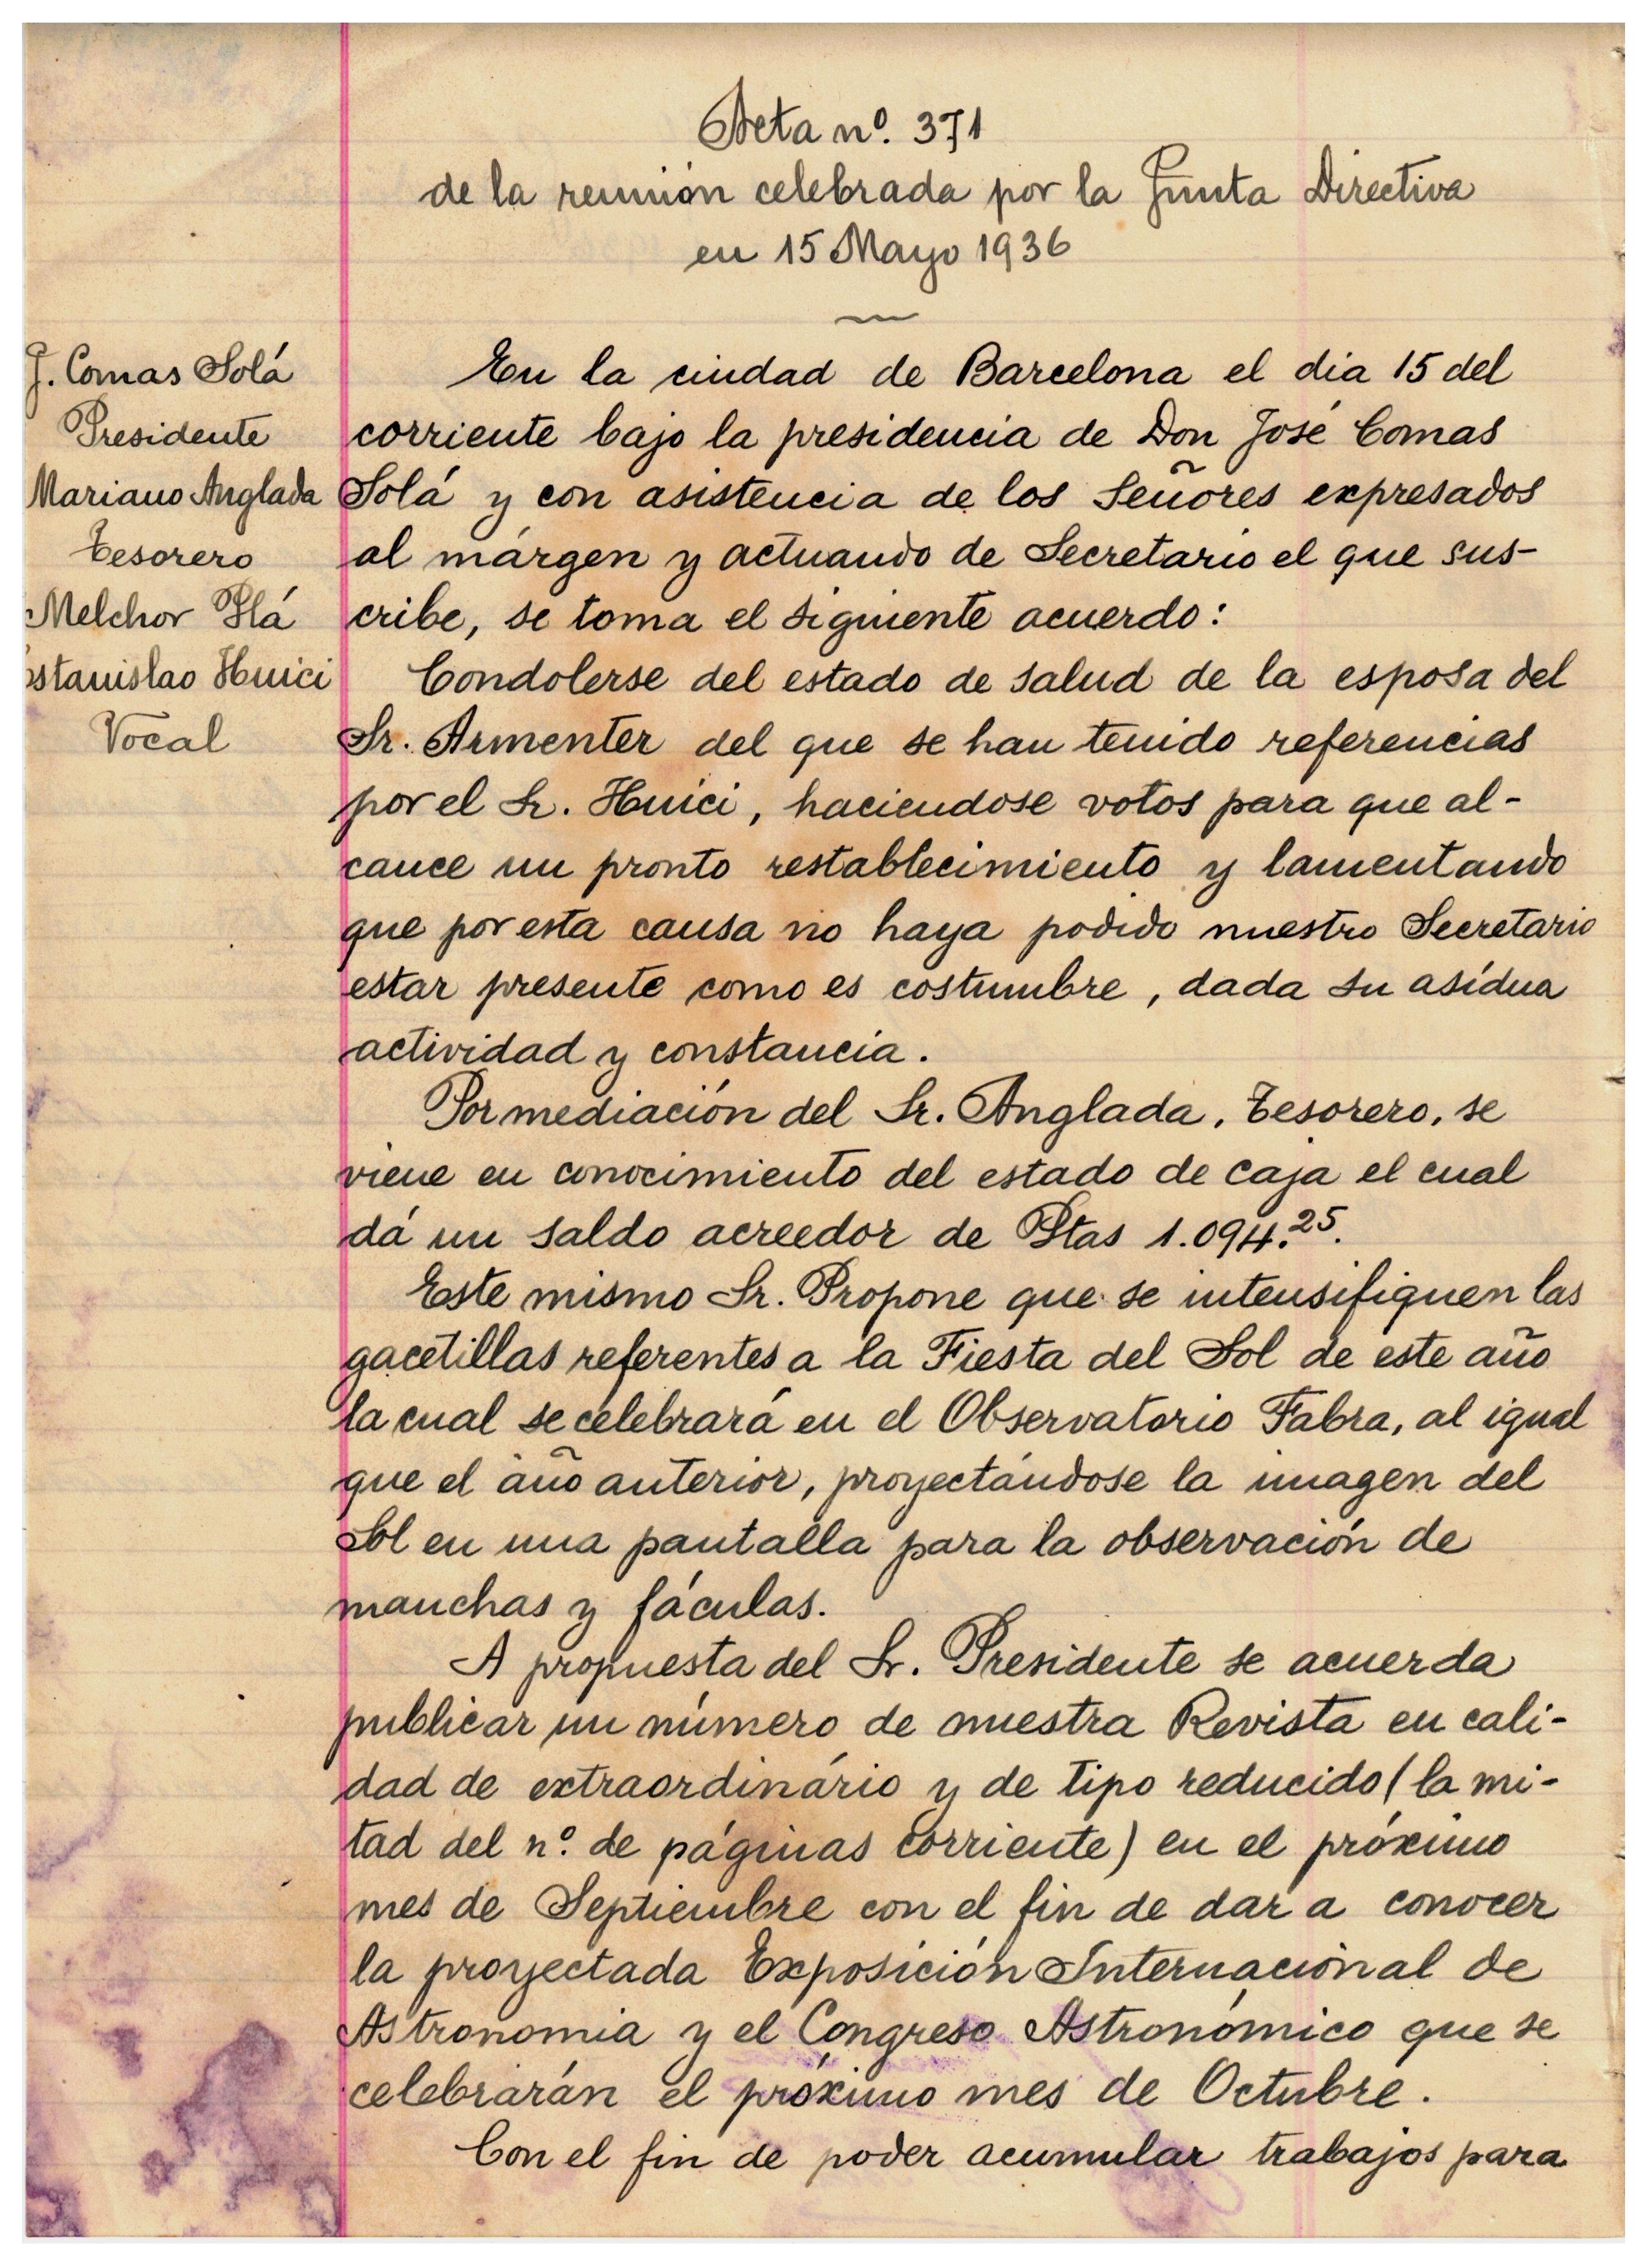 Acta nº. 371
de la reunión celebrada por la Junta Directiva
en 15 Mayo 1936
J. Comas Solá
Presidente
Mariano Anglada
Tesorero
Melchor Plá
Estanislao Huici
Vocal
En la ciudad de Barcelona el dia 15 del
corriente bajo la presidencia de Don José Comas
Solá y con asistencia de los Señores expresados
al márgen y actuando de Secretario el que sus-
cribe, se toma el siguiente acuerdo:
Condolerse del estado de salud de la esposa del
Sr. Armenter del que se han tenido referencias
por el Sr. Huici, haciendose votos para que al-
cance un pronto restablecimiento y lamentando
que por esta causa no haya podido nuestro Secretario
estar presente como es costumbre, dada su asídua
actividad y constancia.
Por mediación del Sr. Anglada, Tesorero, se
viene en conocimiento del estado de caja el cual
dá un saldo acreedor de Ptas 1.094.25.
Este mismo Sr. Propone que se intensifiquen las
gacetillas referentes a la Fiesta del Sol de este año
la cual se celebrará en el Observatorio Fabra, al igual
que el año anterior, proyectándose la imagen del
Sol en una pantalla para la observación de
manchas y fáculas.
A propuesta del Sr. Presidente se acuerda
publicar un número de nuestra Revista en cali-
dad de extraordinário y de tipo reducido (la mi-
tad del nº. de páginas corriente) en el próximo
mes de Septiembre con el fin de dar a conocer
la proyectada Exposición Internacional de
Astronomia y el Congreso Astronómico que se
celebrarán el próximo mes de Octubre.
Con el fin de poder acumular trabajos para